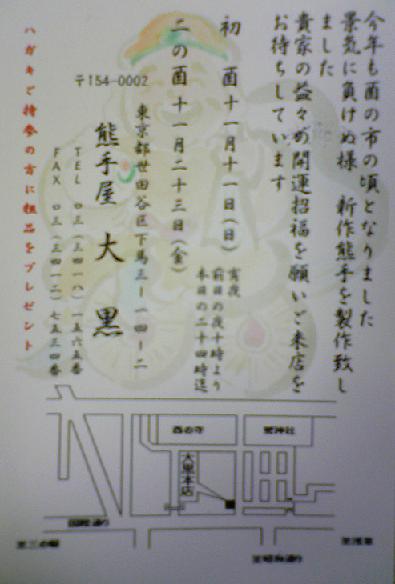 今年も酉の市の頃となりました
景気に負けぬ様 新作熊手を製作致し
ました
貴家の益々の開運招福を願いご来店を
お待ちしています
初 酉 十一月十一日(日)
宵夜
前日の夜十時より
本日の二十四時迄
二の酉 十一月二十三日(金)
〒154-0002
東京都世田谷区下馬三ー一四ー二
熊手屋 大黒
TEL 〇三(三四一八)一五六五番
FAX 〇三(三四一二)七五三四番
ハガキご持参の方に粗品をプレゼント
酉の寺
鷲神社
大黒本店
国際通り
至三の輪
至昭和通り
至浅草